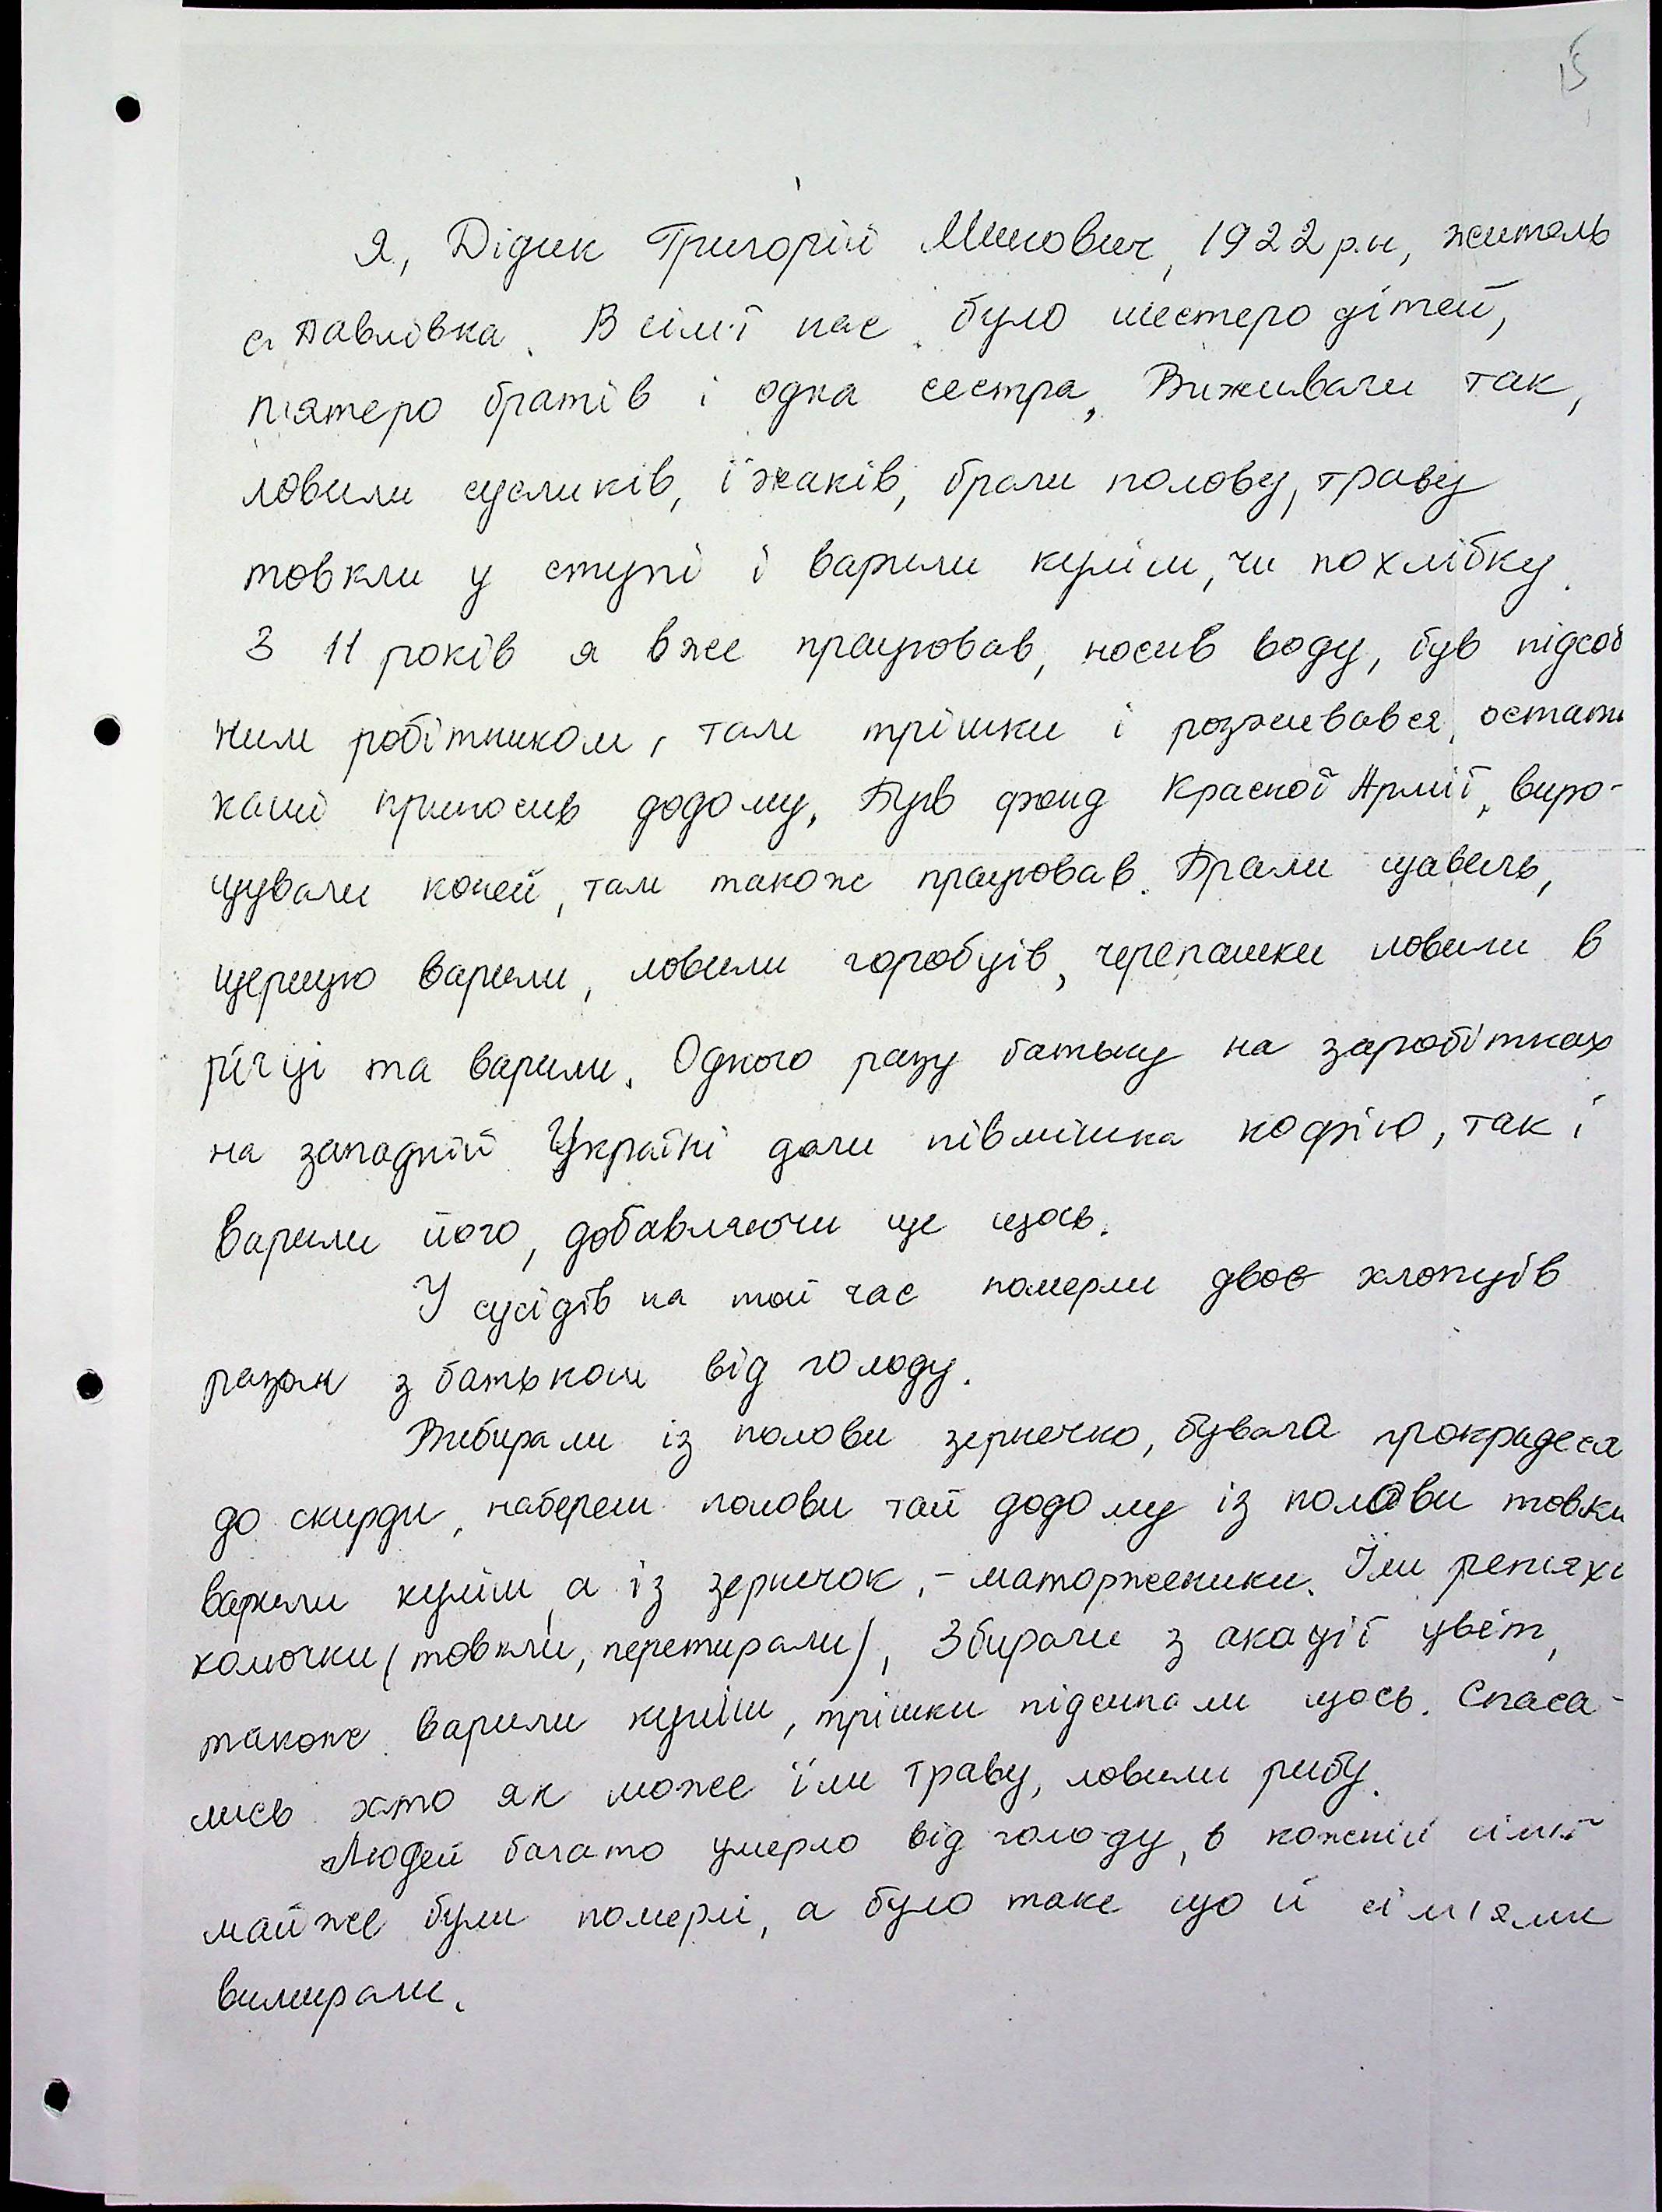 15
Я, Дідик Григорій Минович, 1922 р.н, житель
с. Павлівка. В сім'ї нас було шестеро дітей,
п'ятеро братів і одна сестра. Виживали так,
ловили сусликів, їжаків, брали полову, траву
товкли у ступі і варили куліш, чи похлібку.
З 11 років я вже працював, носив воду, був підсоб
ним робітником, там трішки і розживався, остатк
каші приносив додому. Був фонд Красної Армії, виро-
щували коней, там також працював. Брали щавель,
щерицю варили, ловили горобців, черепашки ловили в
річці та варили. Одного разу батьку на заробітках
на западній Україні дали півмішка кофію, так і
варили його, добавляючи ще щось.
У сусідів на той час померли двоє хлопців
разом з батьком від голоду.
Вибирали із полови зернечко, бувало прокрадеся
до скирди, набереш полови тай додому із полови товкли
варили куліш, а із зерничок, - маторженики. Їли реп'яхи
колючки (товкли, перетирали), Збирали з акації цвіт,
також варили куліш, трішки підсипали щось. Спаса-
лись хто як може їли траву, ловили рибу.
Людей багато умерло від голоду, в кожній сім'ї
майже були померлі, а було таке що й сім'ями
вимирали.